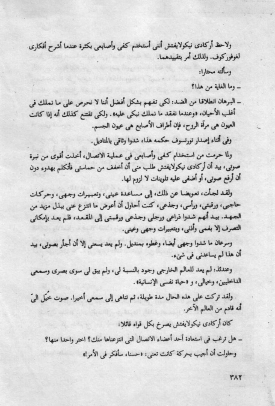 ولاحظ أركادي نيكولايفتش أنني أستخدم كفي وأصابعي بكثرة عندما أشرح أفكاري
لغوفوركوف. ولذلك أمر بتقييدهما.
وسألته محتاراً:
ـ وما الغاية من هذا؟
ـ البرهان انطلاقاً من الضد: لكي تفهم بشكل أفضل أننا لا نحرص على ما نملك في
أغلب الأحيان، وعندما نفقد ما نملك نبكي عليه. ولكي تقتنع كذلك أنه إذا كانت
العيون هي مرآة الروح، فإن أطراف الأصابع هي عيون الجسم.
وفي أثناء إصدار تورتسوف حكمه هذا، شدوا وثاقي بالمناديل.
ولما حرمت من استخدام كفي وأصابعي في عملية الاتصال، أخذت أقوى من نبرة
صوتي، بيد أن أركادي نيكولايفتش طلب مني أن أخفف من حماستي فأتكلم بهدوء دون
أن أرفع صوتي، أو أضفي عليه تلوينات لا لزوم لها.
ولقد لجأت، تعويضاً عن ذلك، إلى مساعدة عيني، وتعبيرات وجهي، وحركات
حاجبي، ورقبتي، ورأسي، وجذعي، كنت أحاول أن أعوض ما انتزع عني ببذل مزيد من
الجهد. بيد أنهم شدوا ذراعي ورجلي وجذعي ورقبتي إلى المقعد، فلم يعد بإمكاني
التصرف إلا بفمي، وأذني، وتعبيرات وجهي وعيني.
وسرعان ما شدوا وجهي أيضاً وغطوه بمنديل. ولم يعد يسعني إلا أن أجأر بصوتي، بيد
أن هذا لم يساعدني في شيء.
وعندئذ، لم يعد للعالم الخارجي وجود بالنسبة لي، ولم يبق لي سوى بصري وسمعي
الداخليين، وخيالي، و«حياة نفسي الإنسانية».
ولقد تركت على هذه الحال مدة طويلة، ثم تناهى إلى سمعي أخيراً. صوت خيل إليّ
أنه قادم من العالم الآخر.
كان أركادي نيكولايفتش يصرخ بكل قواه قائلاً:
ـ هل ترغب في استعادة أحد أعضاء الاتصال التي انتزعناها منك؟ اختر واحداً منها؟
وحاولت أن أجيب بحركة كانت تعني: «حسناً، سأفكر في الأمر»
٣٨٢